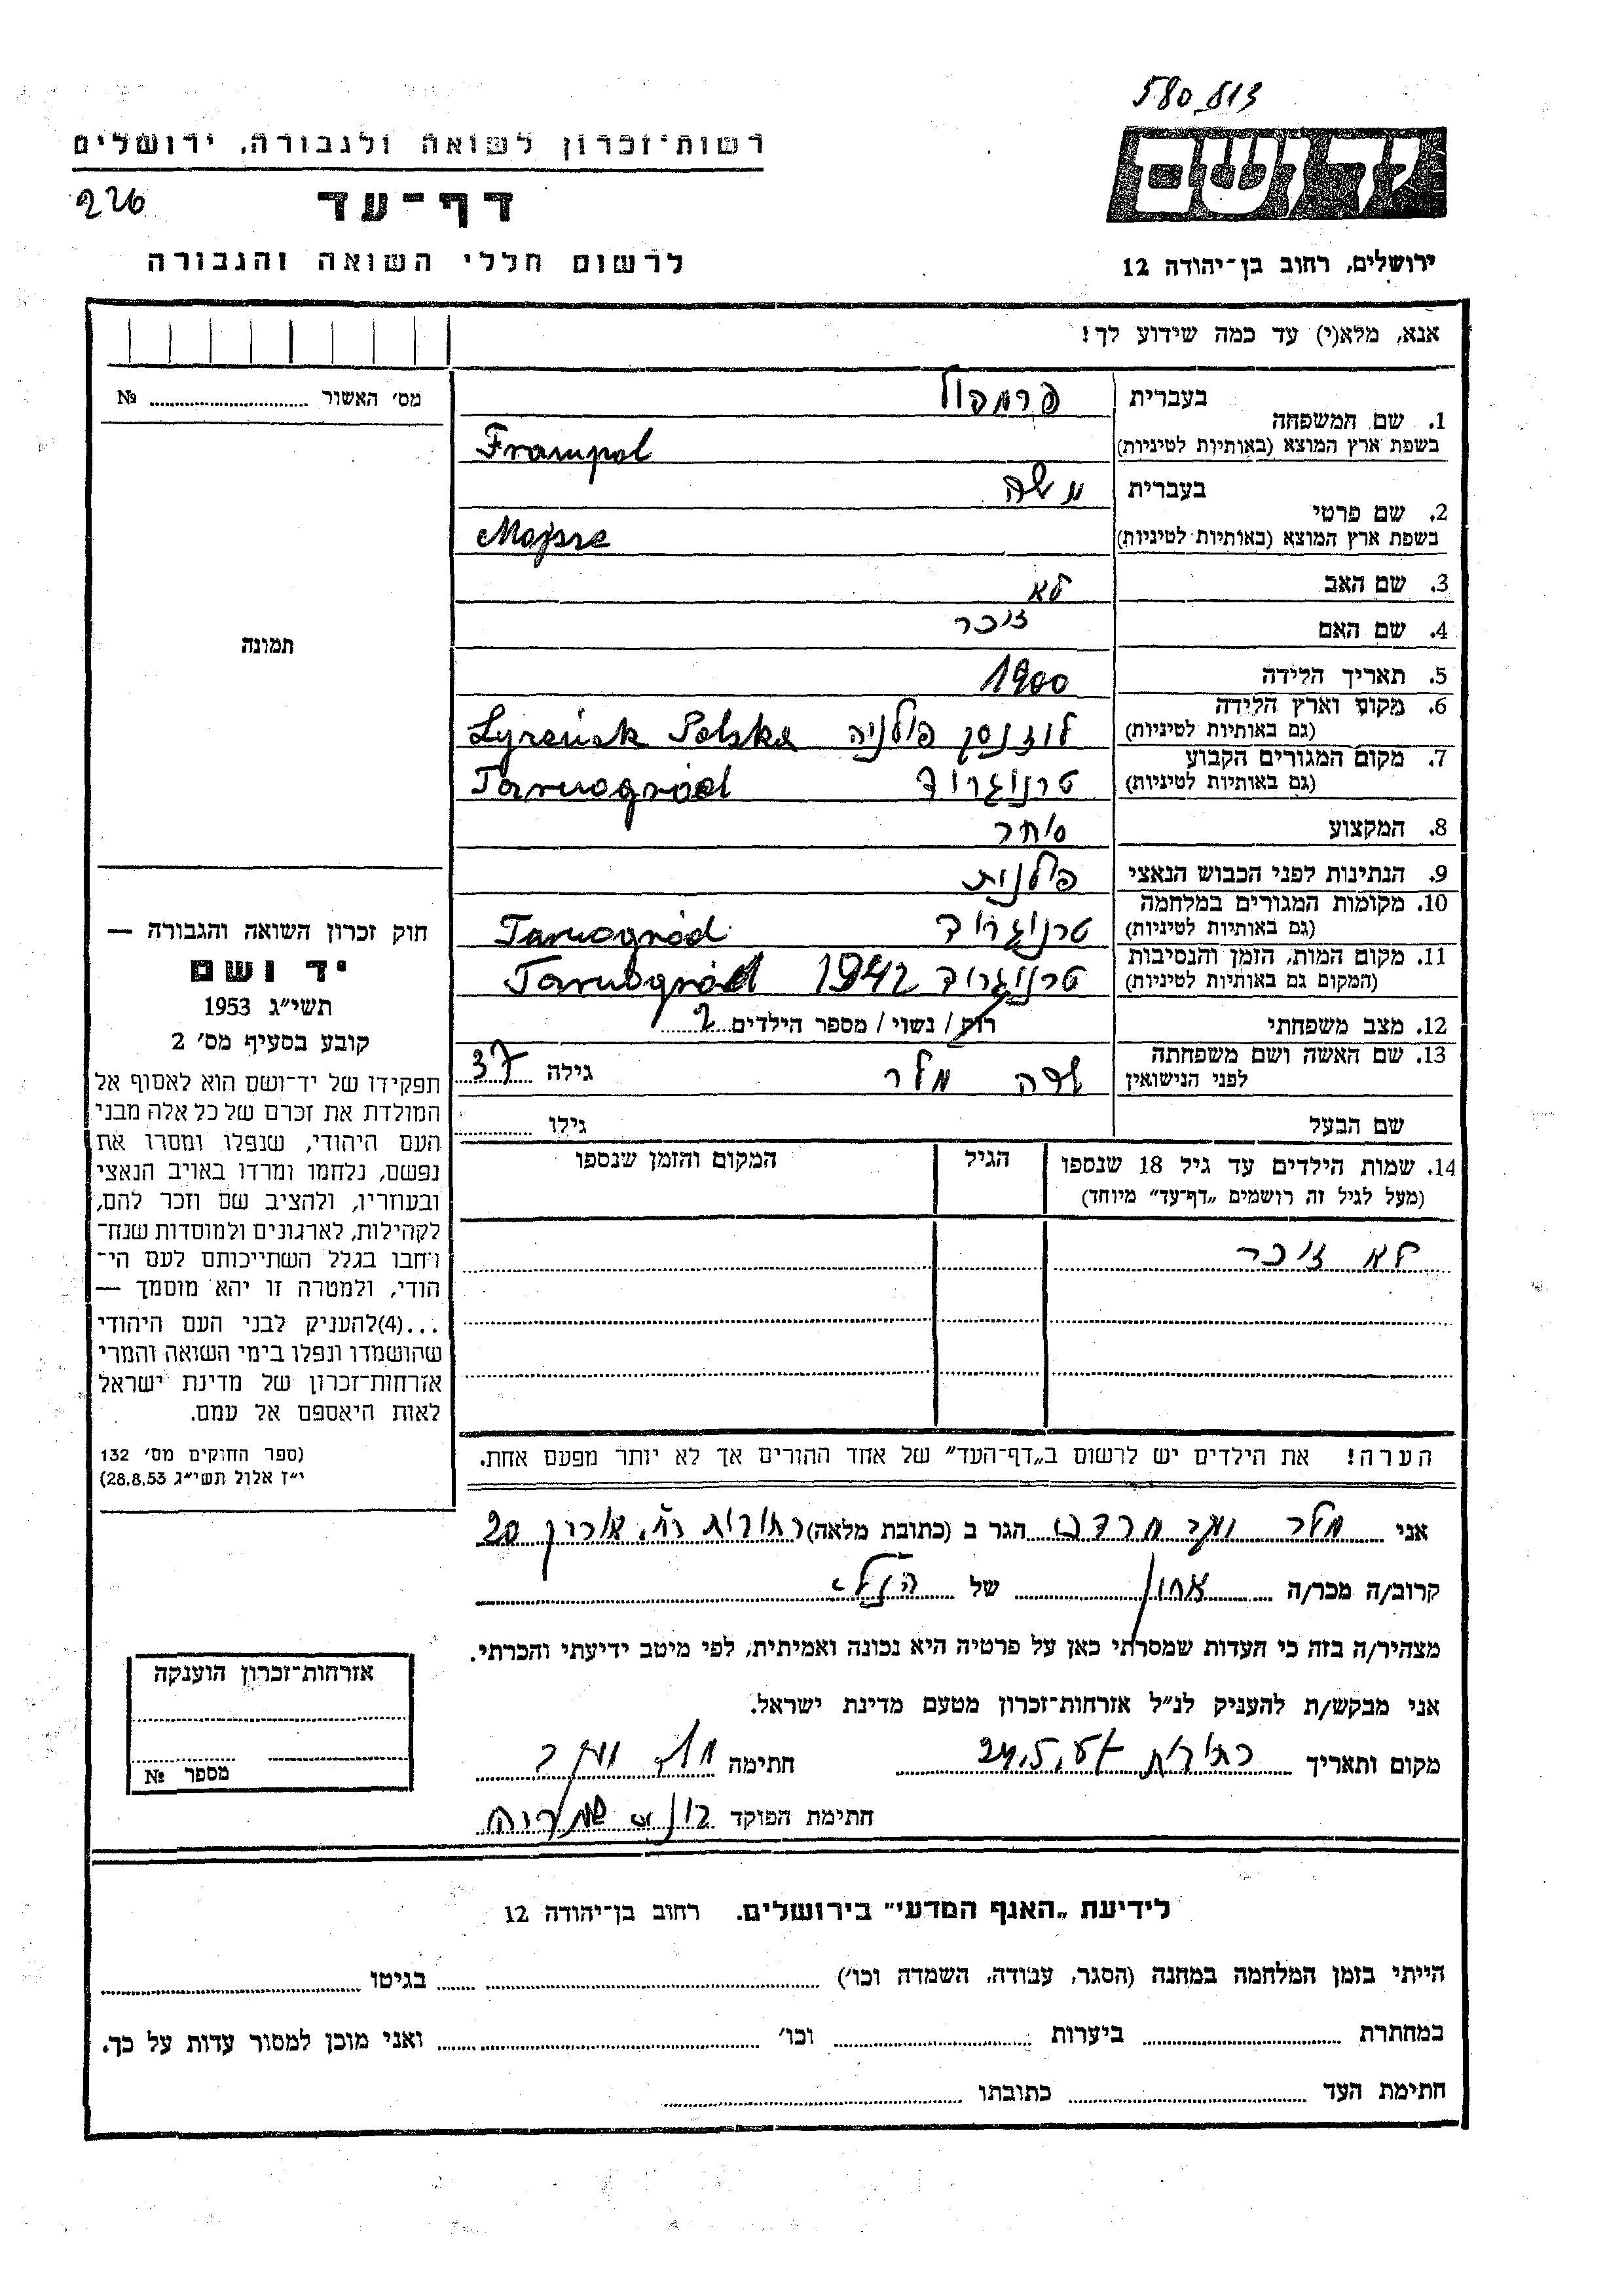 580613
יד ושם
ירושלים, רחוב בן־יהודה 12
רשות־זכרון לשואה ולגבורה, ירושלים
226
דף־עד
לרשום חללי השואה והגבורה
אנא, מלא(י) עד כמה שידוע לך!
מס׳ האשור № ........
בעברית פרמפול
1. שם המשפחה
בשפת ארץ המוצא (באותיות לטיניות) Frampol
בעברית משה
2. שם פרטי
בשפת ארץ המוצא (באותיות לטיניות) Mojsze
3. שם האב לא
4. שם האם זוכר
5. תאריך הלידה 1900
6. מקום וארץ הלידה
(גם באותיות לטיניות) פולניה Polska
7. מקום המגורים הקבוע
(גם באותיות לטיניות) טרנוגרוד Tarnogród
8. המקצוע סוחר
9. הנתינות לפני הכבוש הנאצי פולנית
10. מקומות המגורים במלחמה
(גם באותיות לטיניות) טרנוגרוד Tarnogród
11. מקום המות, הזמן והנסיבות
(המקום גם באותיות לטיניות) טרנוגרוד 1942 Tarnogród
12. מצב משפחתי רוק / נשוי / מספר הילדים 2
13. שם האשה ושם משפחתה
לפני הנישואין שרה מלר גילה 37
שם הבעל גילו ........
14. שמות הילדים עד גיל 18 שנספו הגיל המקום והזמן שנספו
(מעל לגיל זה רושמים „דף־עד״ מיוחד)
לא זוכר
הערה! את הילדים יש לרשום ב„דף־העד״ של אחד ההורים אך לא יותר מפעם אחת.
תמונה
חוק זכרון השואה והגבורה —
יד ושם
תשי״ג 1953
קובע בסעיף מס׳ 2
תפקידו של יד־ושם הוא לאסוף אל
המולדת את זכרם של כל אלה מבני
העם היהודי, שנפלו ומסרו את
נפשם, נלחמו ומרדו באויב הנאצי
ובעוזריו, ולהציב שם וזכר להם,
לקהילות, לארגונים ולמוסדות שנח־
רבו בגלל השתייכותם לעם הי־
הודי, ולמטרה זו יהא מוסמך —
...(4)להעניק לבני העם היהודי
שהושמדו ונפלו בימי השואה והמרי
אזרחות־זכרון של מדינת ישראל
לאות היאספם אל עמם.
(ספר החוקים מס׳ 132
י״ז אלול תשי״ג 28.8.53)
אני מלר הגר ב (כתובת מלאה) רח. 20
קרוב/ה מכר/ה של הנ״ל
מצהיר/ה בזה כי העדות שמסרתי כאן על פרטיה היא נכונה ואמיתית, לפי מיטב ידיעתי והכרתי.
אני מבקש/ת להעניק לנ״ל אזרחות־זכרון מטעם מדינת ישראל.
מקום ותאריך 24.5. חתימה
חתימת הפוקד
אזרחות־זכרון הוענקה
מספר №
לידיעת „האגף המדעי״ בירושלים. רחוב בן־יהודה 12
הייתי בזמן המלחמה במחנה (הסגר, עבודה, השמדה וכו׳) ........ בגיטו ........
במחתרת ........ ביערות ........ וכו׳ ........ ואני מוכן למסור עדות על כך.
חתימת העד ........ כתובתו ........